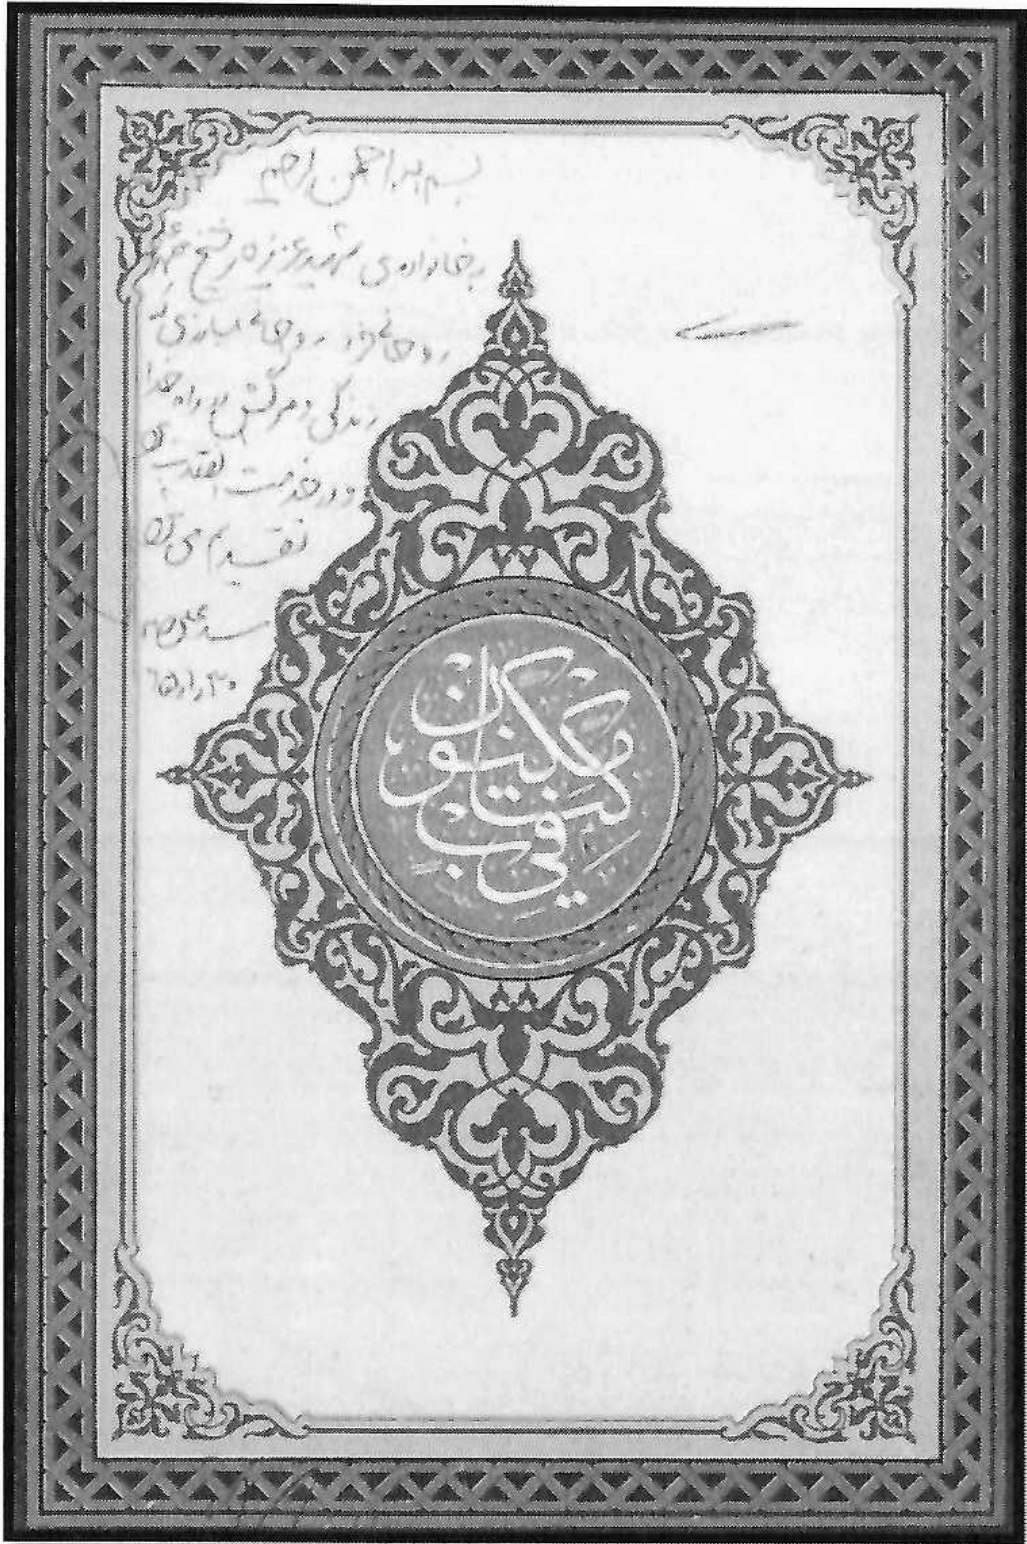 بسم الله الرحمن الرحیم
به خانواده‌ی شهید عزیز شیخ
روحانی مبارزی که
زندگی و مرگش در راه خدا
و در خدمت انقلاب
تقدیم می
سید علی
۶۵/۱/۳۰
فِي كِتَابٍ مَكْنُونٍ